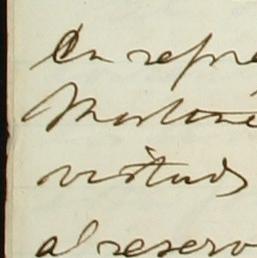 En repre
Martine
virtud
al reserv